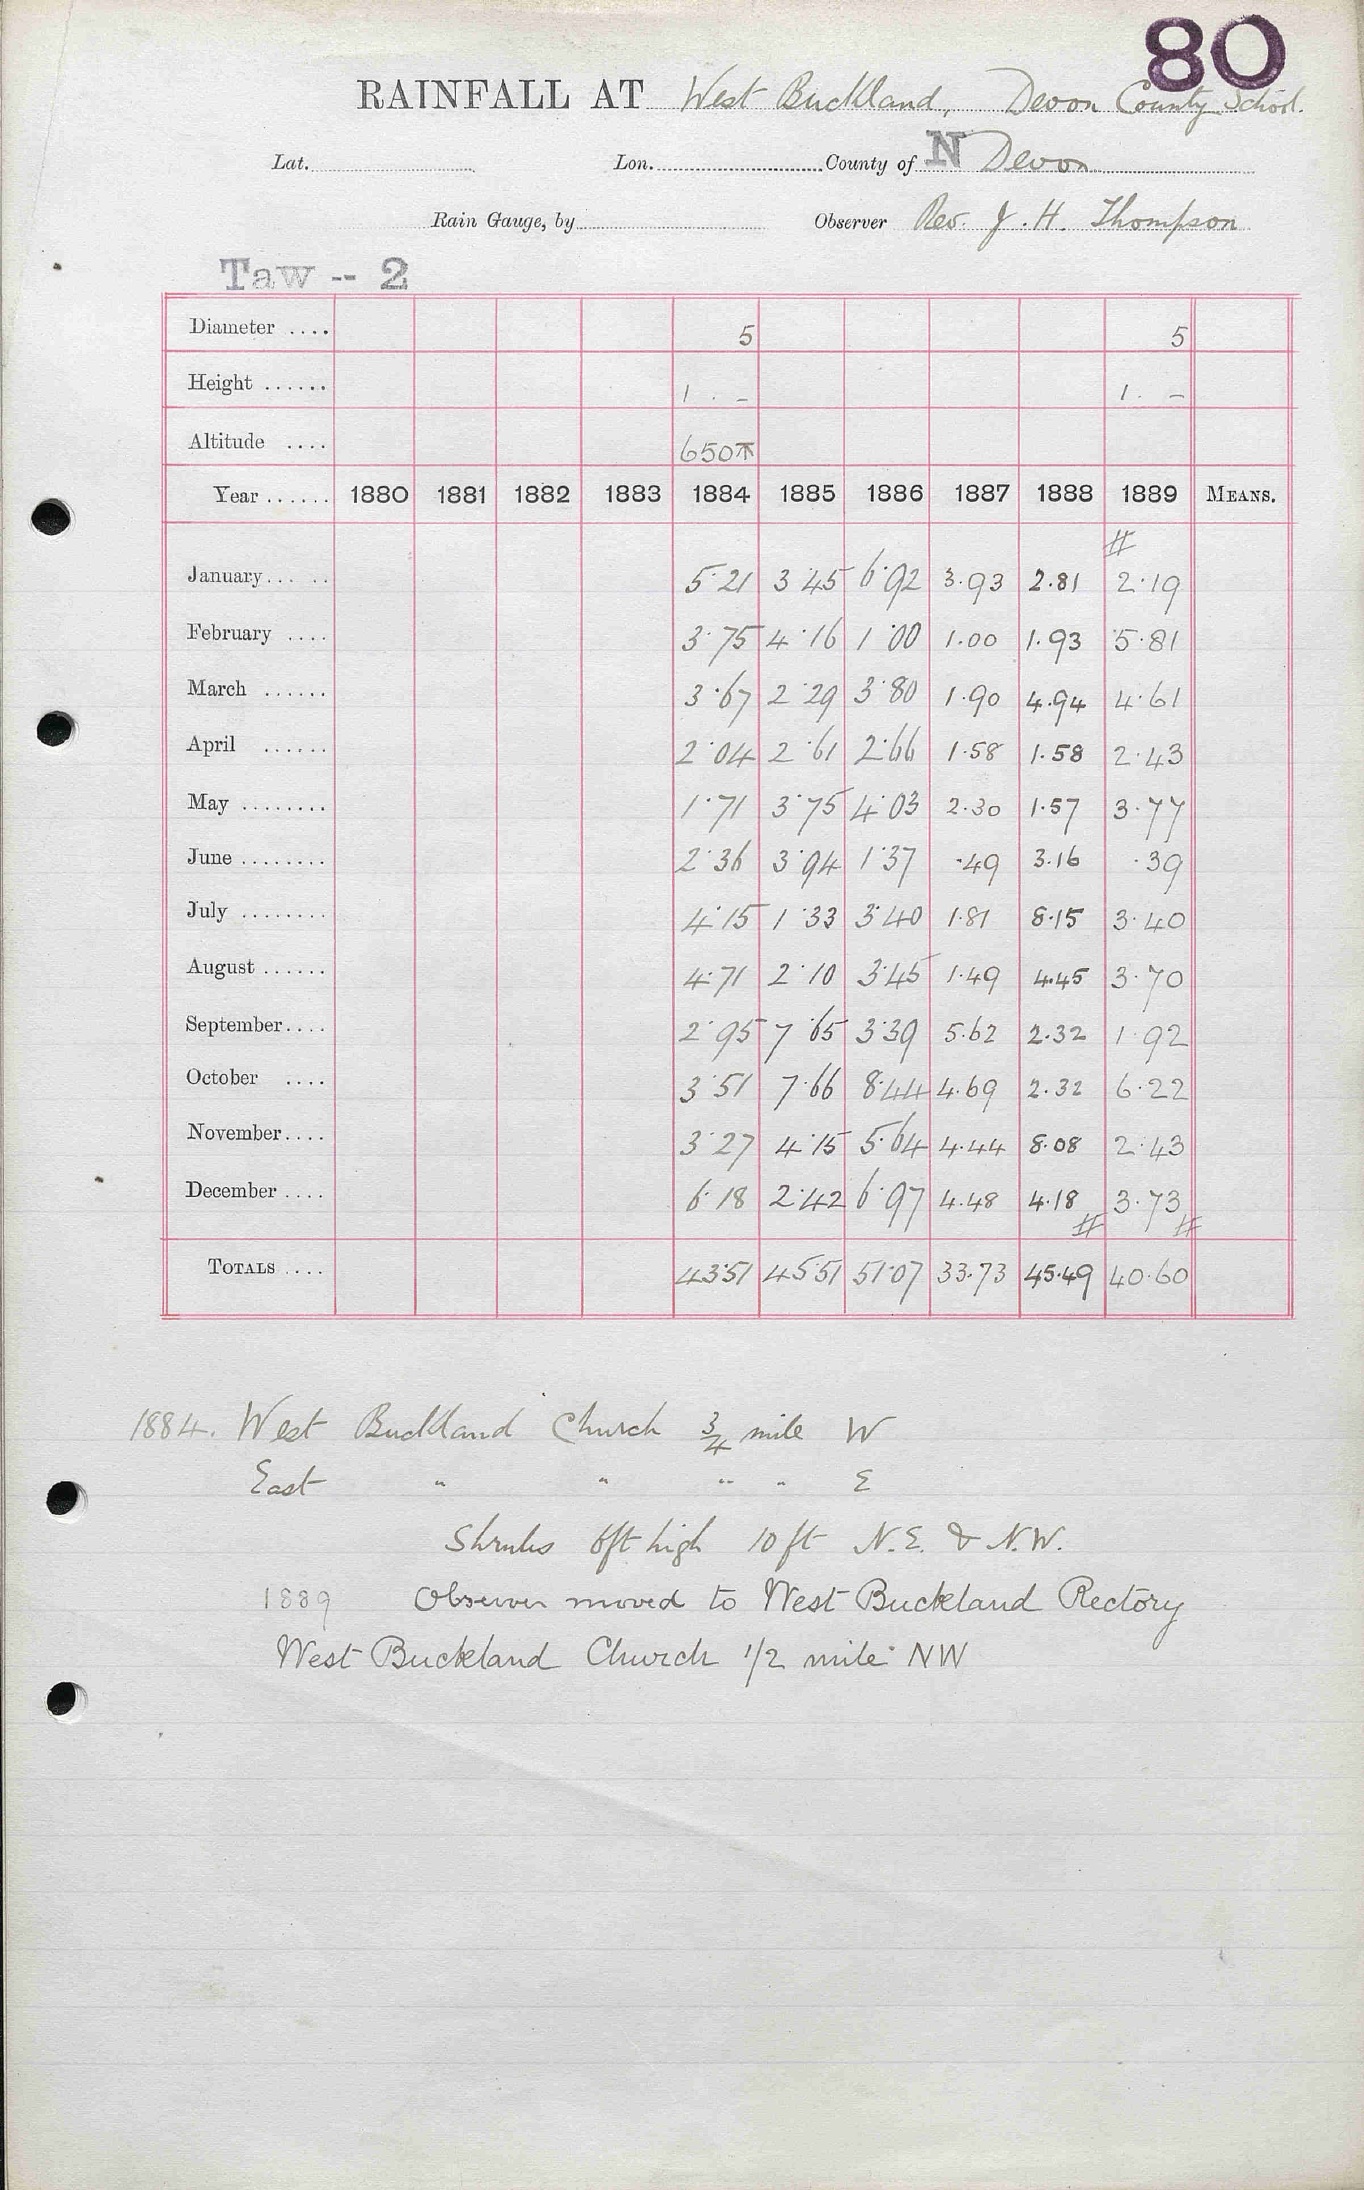 80
RAINFALL AT West Buckland, Devon County School.
Lat. Lon. County of N Devon
Rain Gauge, by Observer Rev. J. H. Thompson
Taw -- 2
Diameter .... 5 5
Height ...... 1 . - 1 . -
Altitude .... 650
Year ...... 1880 1881 1882 1883 1884 1885 1886 1887 1888 1889 MEANS.
#
January... .. 5.21 3.45 6.92 3.93 2.81 2.19
February .... 3.75 4.16 1.00 1.00 1.93 5.81
March ...... 3.67 2.29 3.80 1.90 4.94 4.61
April ...... 2.04 2.61 2.66 1.58 1.58 2.43
May ........ 1.71 3.75 4.03 2.30 1.57 3.77
June ........ 2.36 3.94 1.37 .49 3.16 .39
July ........ 4.15 1.33 3.40 1.81 8.15 3.40
August ...... 4.71 2.10 3.45 1.49 4.45 3.70
September.... 2.95 7.65 3.39 5.62 2.32 1.92
October .... 3.51 7.66 8.44 4.69 2.32 6.22
November.... 3.27 4.15 5.64 4.44 8.08 2.43
December .... 6.18 2.42 6.97 4.48 4.18 3.73
# #
TOTALS .... 43.51 45.51 51.07 33.73 45.49 40.60
1884. West Buckland Church 3/4 mile W
East " " " " E
Shrubs 6ft high 10ft N.E. & N.W.
1889 Observer moved to West Buckland Rectory
West Buckland Church 1/2 mile NW